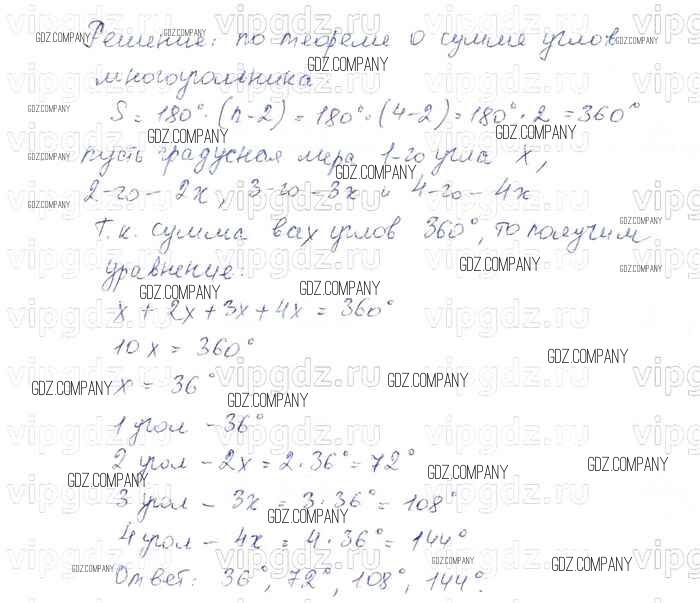 Решение: по теореме о сумме углов
многоугольника:
S = 180°·(n-2) = 180°·(4-2) = 180°·2 = 360°
пусть градусная мера 1-го угла x,
2-го - 2x, 3-го - 3x и 4-го - 4x
Т.к. сумма всех углов 360°, то получим
уравнение:
x + 2x + 3x + 4x = 360°
10x = 360°
x = 36°
1 угол - 36°
2 угол - 2x = 2·36° = 72°
3 угол - 3x = 3·36° = 108°
4 угол - 4x = 4·36° = 144°
Ответ: 36°, 72°, 108°, 144°.
GDZ.COMPANY
vipgdz.ru